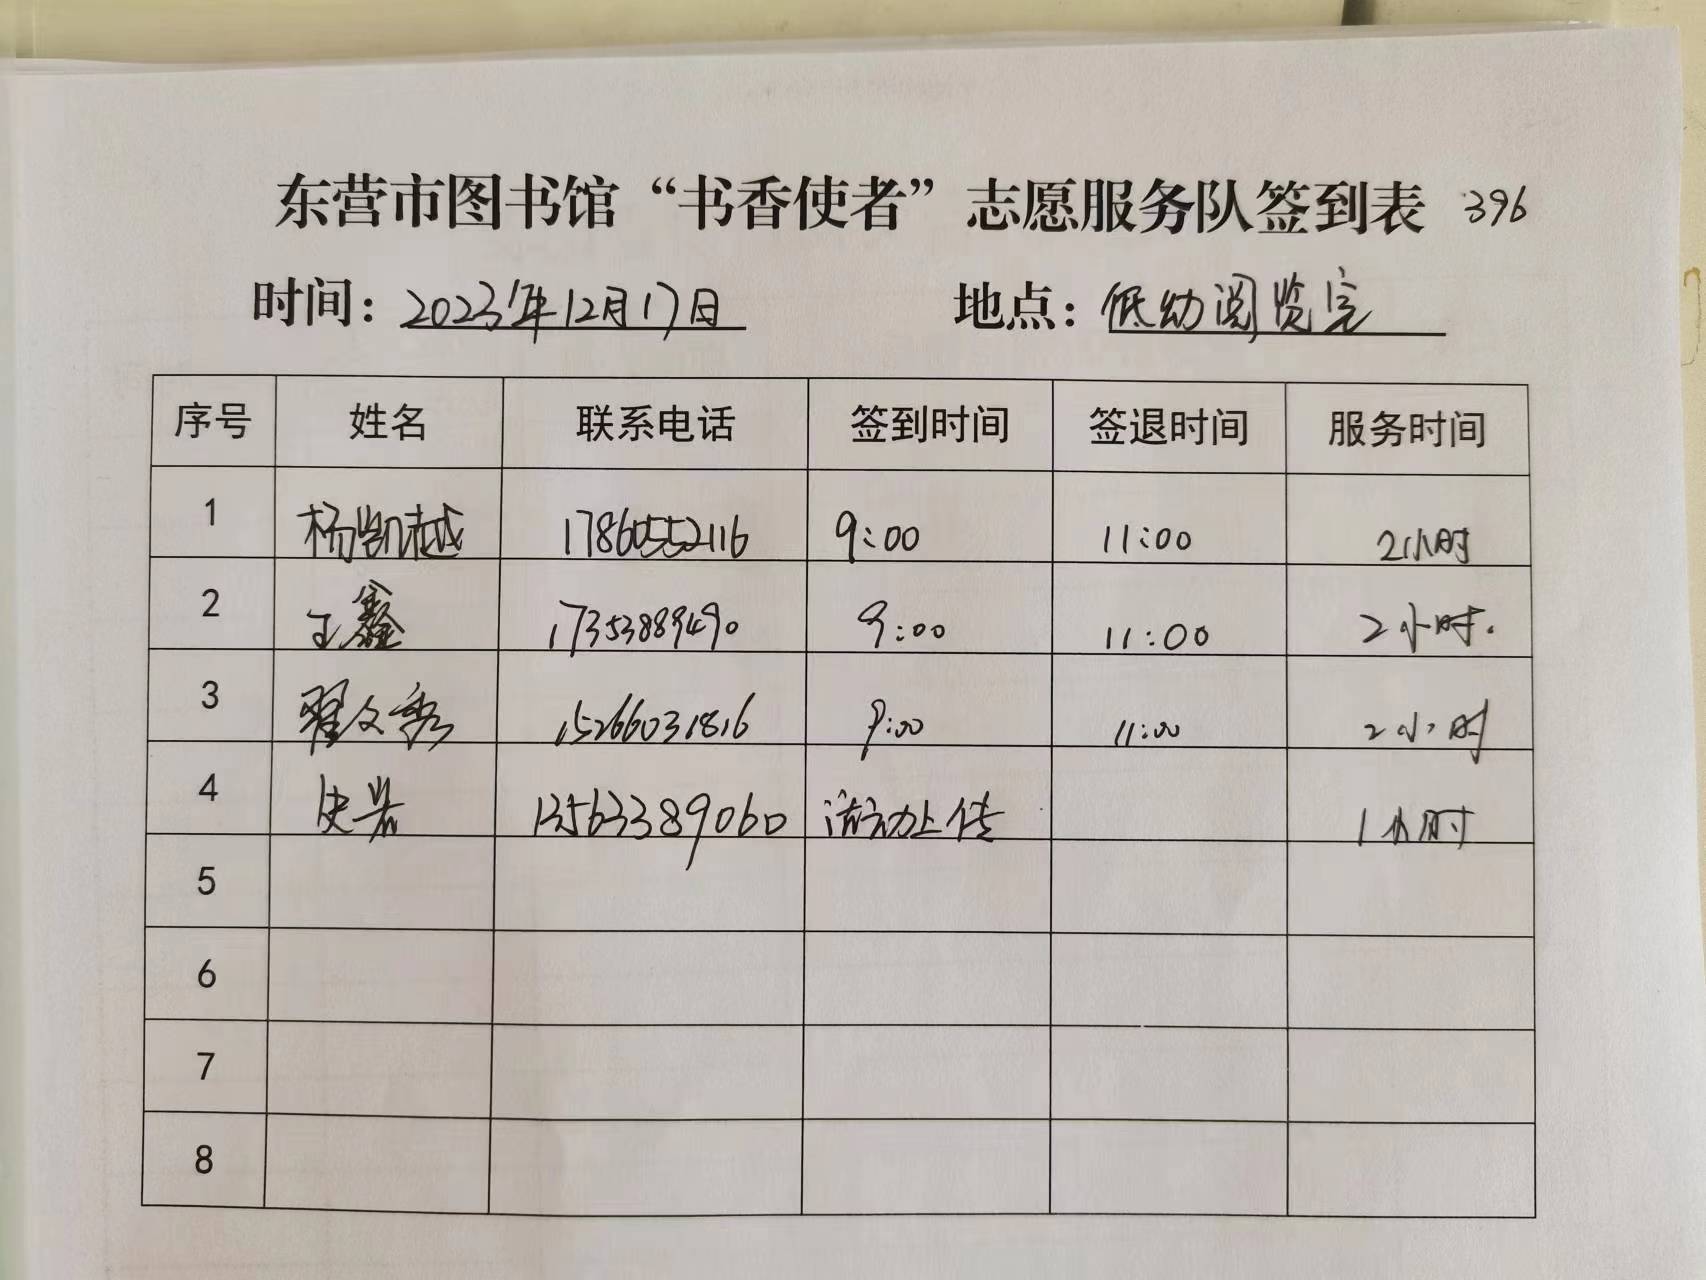 东营市图书馆“书香使者”志愿服务队签到表 396
时间：2023年12月17日 地点：低幼阅览室
序号 姓名 联系电话 签到时间 签退时间 服务时间
1 杨凯越 17860552116 9:00 11:00 2小时
2 王鑫 17353889490 9:00 11:00 2小时.
3 翟文秀 15266031816 9:00 11:00 2小时
4 史岩 13563389060 活动上传 1小时
5
6
7
8